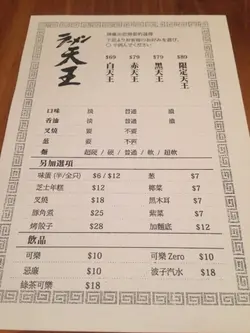 ラーメン
天王
$69 白天王
$79 赤天王
$79 黑天王
$89 限定天王
口味 淡 普通 濃
香油 淡 普通 濃
叉燒 要 不要
蔥 要 不要
麵 超硬 / 硬 / 普通 / 軟 / 超軟
另加選項
味蛋 (半/全只) $6 / $12
蔥 $7
芝士年糕 $12
椰菜 $7
叉燒 $18
黑木耳 $7
豚角煮 $25
紫菜 $7
烤餃子 $28
加麵底 $12
飲品
可樂 $10
可樂 Zero $10
忌廉 $10
波子汽水 $18
綠茶可樂 $18